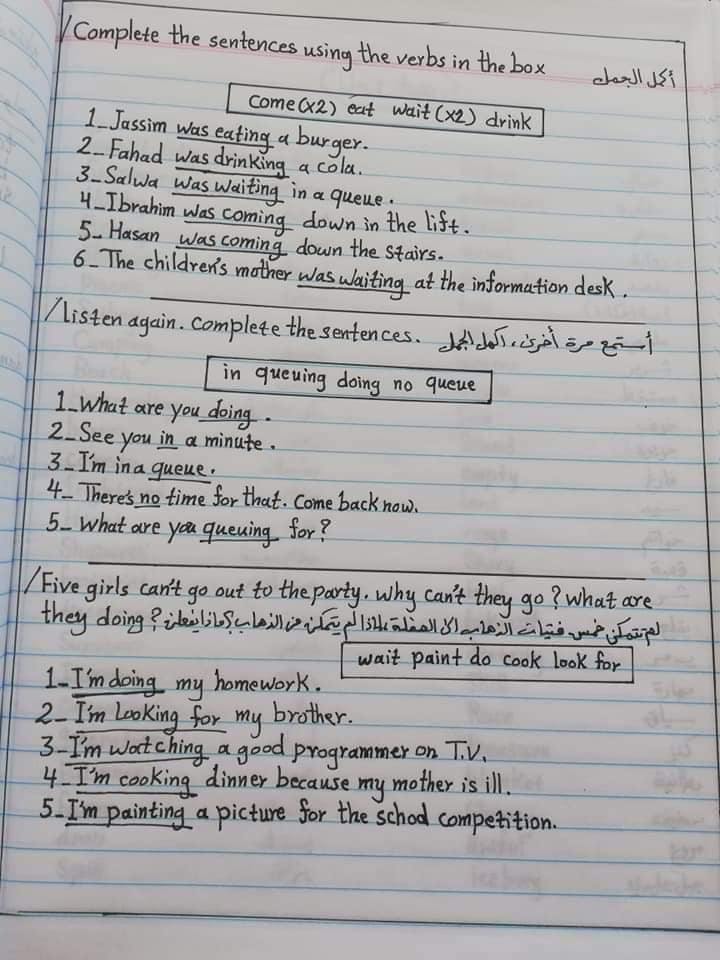 /Complete the sentences using the verbs in the box أكمل الجمل
come(x2) eat wait(x2) drink
1_Jassim was eating a burger.
2_Fahad was drinking a cola.
3_Salwa was waiting in a queue.
4_Ibrahim was coming down in the lift.
5_Hasan was coming down the stairs.
6_The children's mother was waiting at the information desk.
/listen again. Complete the sentences. أستمع مرة أخرى، اكمل الجمل
in queuing doing no queue
1_What are you doing.
2_See you in a minute.
3_I'm in a queue.
4_There's no time for that. Come back now.
5_What are you queuing for?
/Five girls can't go out to the party. Why can't they go? What are
they doing? لم تتمكن خمس فتيات الذهاب الى الحفلة، لماذا لم يتمكن من الذهاب؟ ماذا يفعلن
wait paint do cook look for
1_I'm doing my homework.
2_I'm looking for my brother.
3_I'm watching a good programmer on T.V.
4_I'm cooking dinner because my mother is ill.
5_I'm painting a picture for the schod competition.